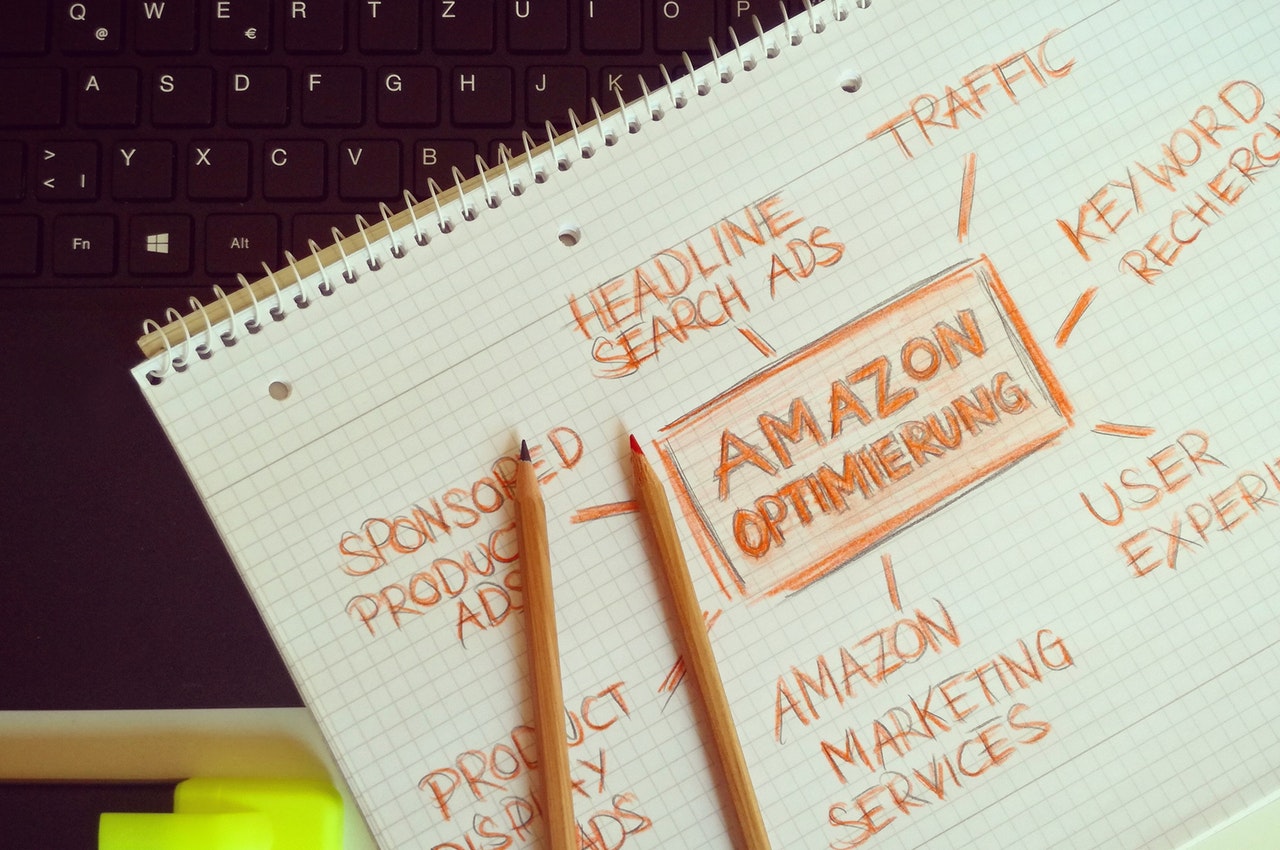 Q W E R T Z U I O P
@ €
A S D F G H J K
> Y X C V B
< |
Fn Alt
TRAFFIC
KEYWORD
RECHERCH
HEADLINE
SEARCH ADS
AMAZON
OPTIMIERUNG
SPONSORED
PRODUCT
ADS
USER
EXPERI
AMAZON
MARKETING
SERVICES
PRODUCT
DISPLAY
ADS